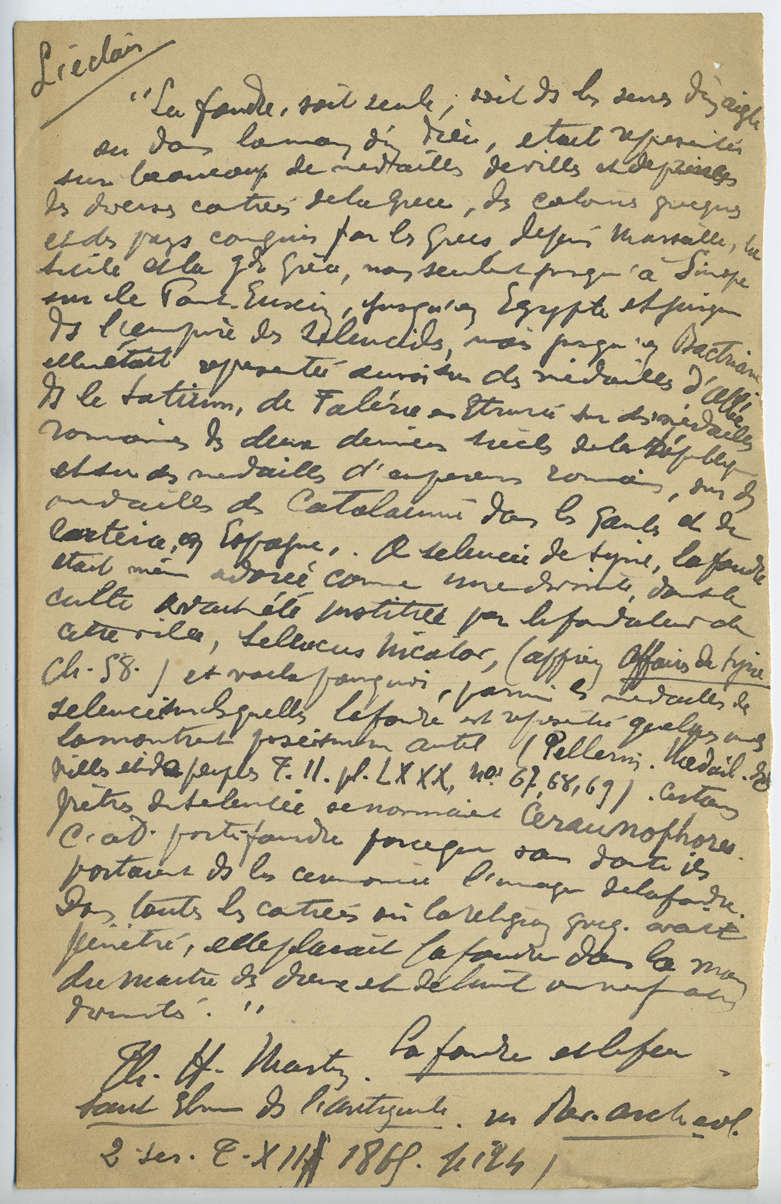 L'éclair
"La foudre, soit seule, soit ds les serres d'un aigle
ou dans la main d'un Dieu, était représentée
sur beaucoup de médailles de villes et de princes
des diverses contrées de la Grèce, des colonies grecques
et des pays conquis par les Grecs depuis Marseille, la
Sicile et la gde Grèce, non seulent jusqu'à Sinope
sur le Pont Euxin, jusqu'en Egypte et jusque
ds l'empire des Seleucids, mais jusqu'en Bactriane
elle était représentée aussi sur des médailles d'
ds le Latium, de Falérie en Etrurie sur des médailles
romaines des deux derniers siècles de la République
et sur des médailles d'empereurs romains, sur des
médailles de Catalaunu dans les Gaules et de
Carteia, en Espagne. A Seleucie de Syrie, la foudre
était même adorée comme une divinité, dont le
culte avait été institué par le fondateur de
cette ville, Seleucus Nicator, (Appien Affaires de Syrie
Ch. 58.) et voilà pourquoi, parmi les médailles de
Seleucie sur lesquelles la foudre est représentée quelques unes
la montrent posée sur un autel (Pellerin. Médail. des
villes et de peuples T. II. pl. LXXX, nos 67, 68, 69). Certains
prêtres de Seleucie se nommaient Ceraunophores.
C. a D. porte-foudre parceque sans doute ils
portaient ds les cérémonies l'image de la foudre.
Dans toutes les contrées où la religion grecq. avait
pénétré, elle plaçait la foudre dans la main
du maitre des dieux et de huit ou neuf autres
divinités."
Th. H. Martin. La foudre et le feu
Saint Elme ds l'antiquité. in Rev. archéol.
2 ser. T. XIII 1865.